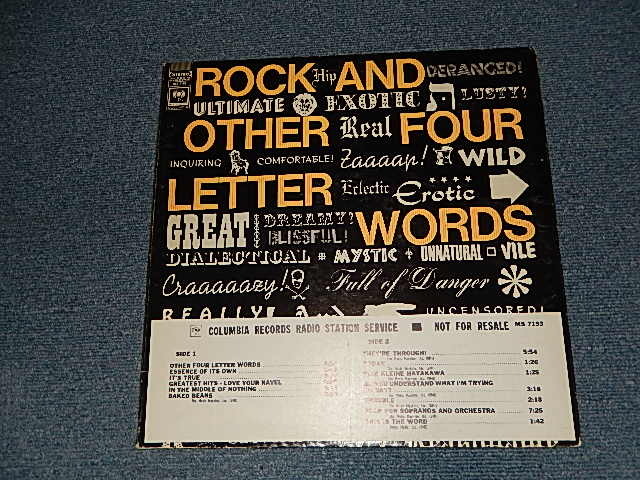 ROCK Hip AND DERANGED!
ULTIMATE EXOTIC LUSTY!
OTHER Real FOUR
INQUIRING COMFORTABLE! Zaaaap! WILD
LETTER Eclectic Erotic
GREAT DREAMY? WORDS
BLISSFUL!
DIALECTICAL MYSTIC + UNNATURAL VILE
Craaaaaazy! Full of Danger
REALLY UNCENSORED!
COLUMBIA RECORDS RADIO STATION SERVICE NOT FOR RESALE MS 7193
SIDE 1
OTHER FOUR LETTER WORDS
ESSENCE OF ITS OWN
IT'S TRUE
GREATEST HITS - LOVE YOUR NAVEL
IN THE MIDDLE OF NOTHING
BAKED BEANS
SIDE 2
THEY'RE THROUGH! 5:54
1:26
KLEINE HATAKAWA 1:25
YOU UNDERSTAND WHAT I'M TRYING
3:18
2:18
FOR SOPRANOS AND ORCHESTRA 7:25
THIS IS THE WORD 1:42